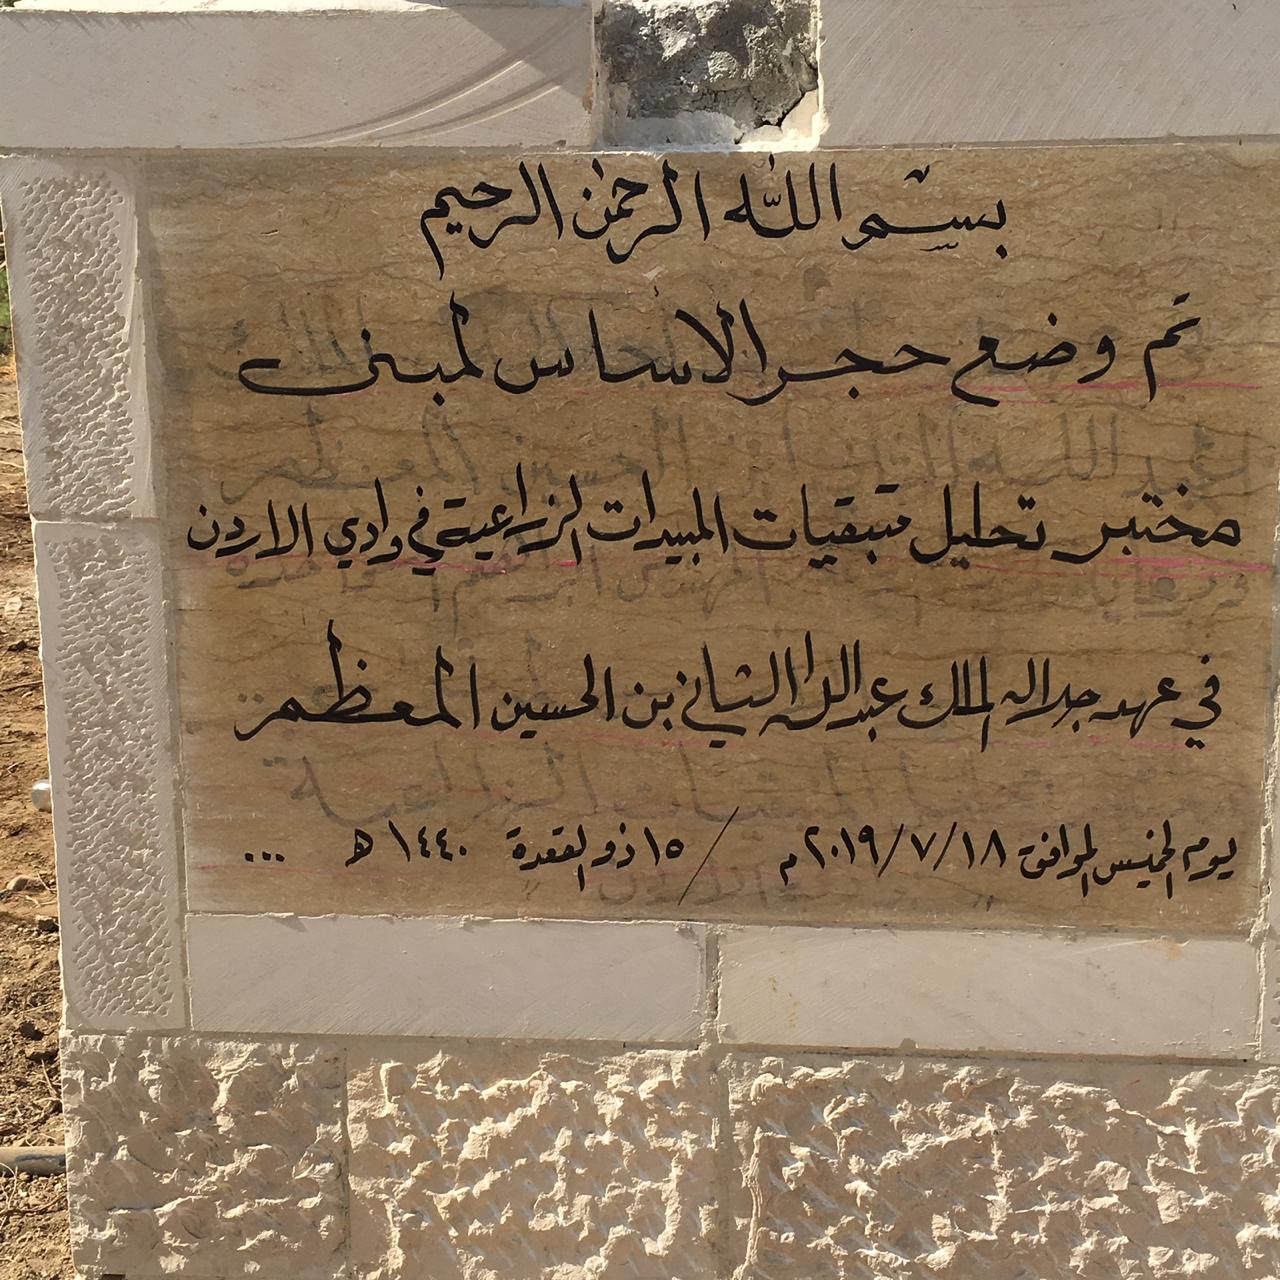 بسم الله الرحمن الرحيم
تم وضع حجر الاساس لمبنى
مختبر تحليل متبقيات المبيدات الزراعية في وادي الاردن
في عهد جلالة الملك عبدالله الثاني بن الحسين المعظم
يوم الخميس الموافق ٢٠١٩/٧/١٨ م / ١٥ ذو القعدة ١٤٤٠ هـ ...